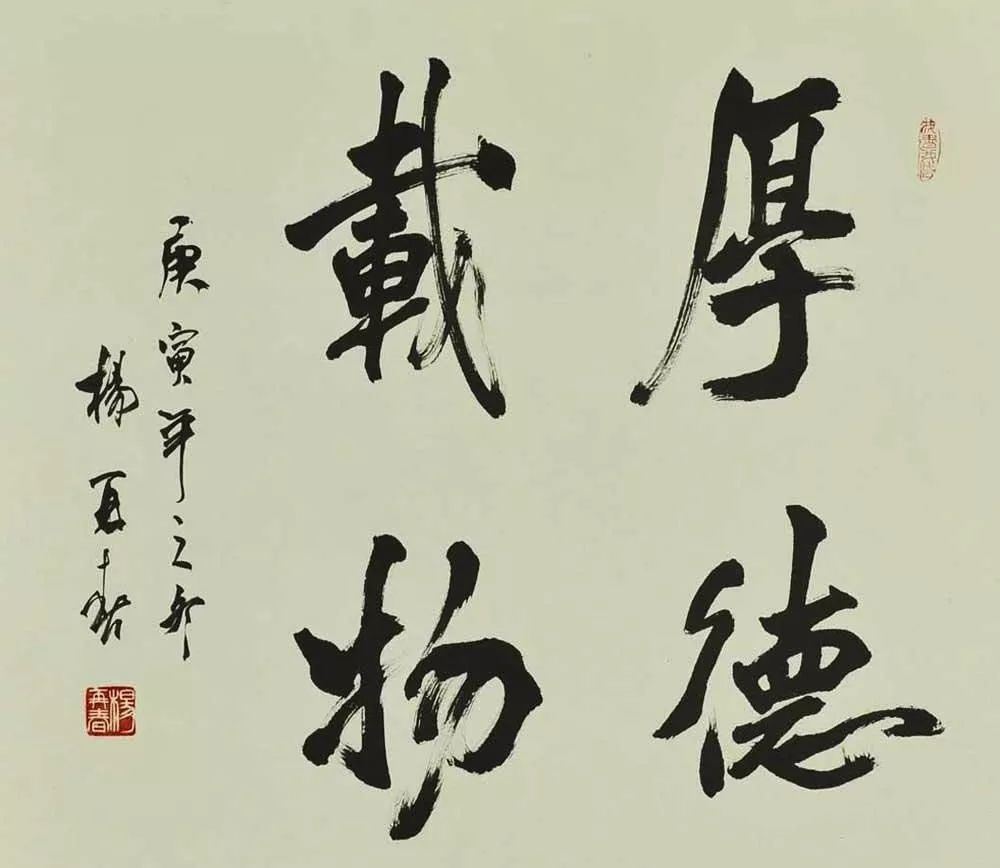 厚德
載物
庚寅年之
楊再春
楊再春